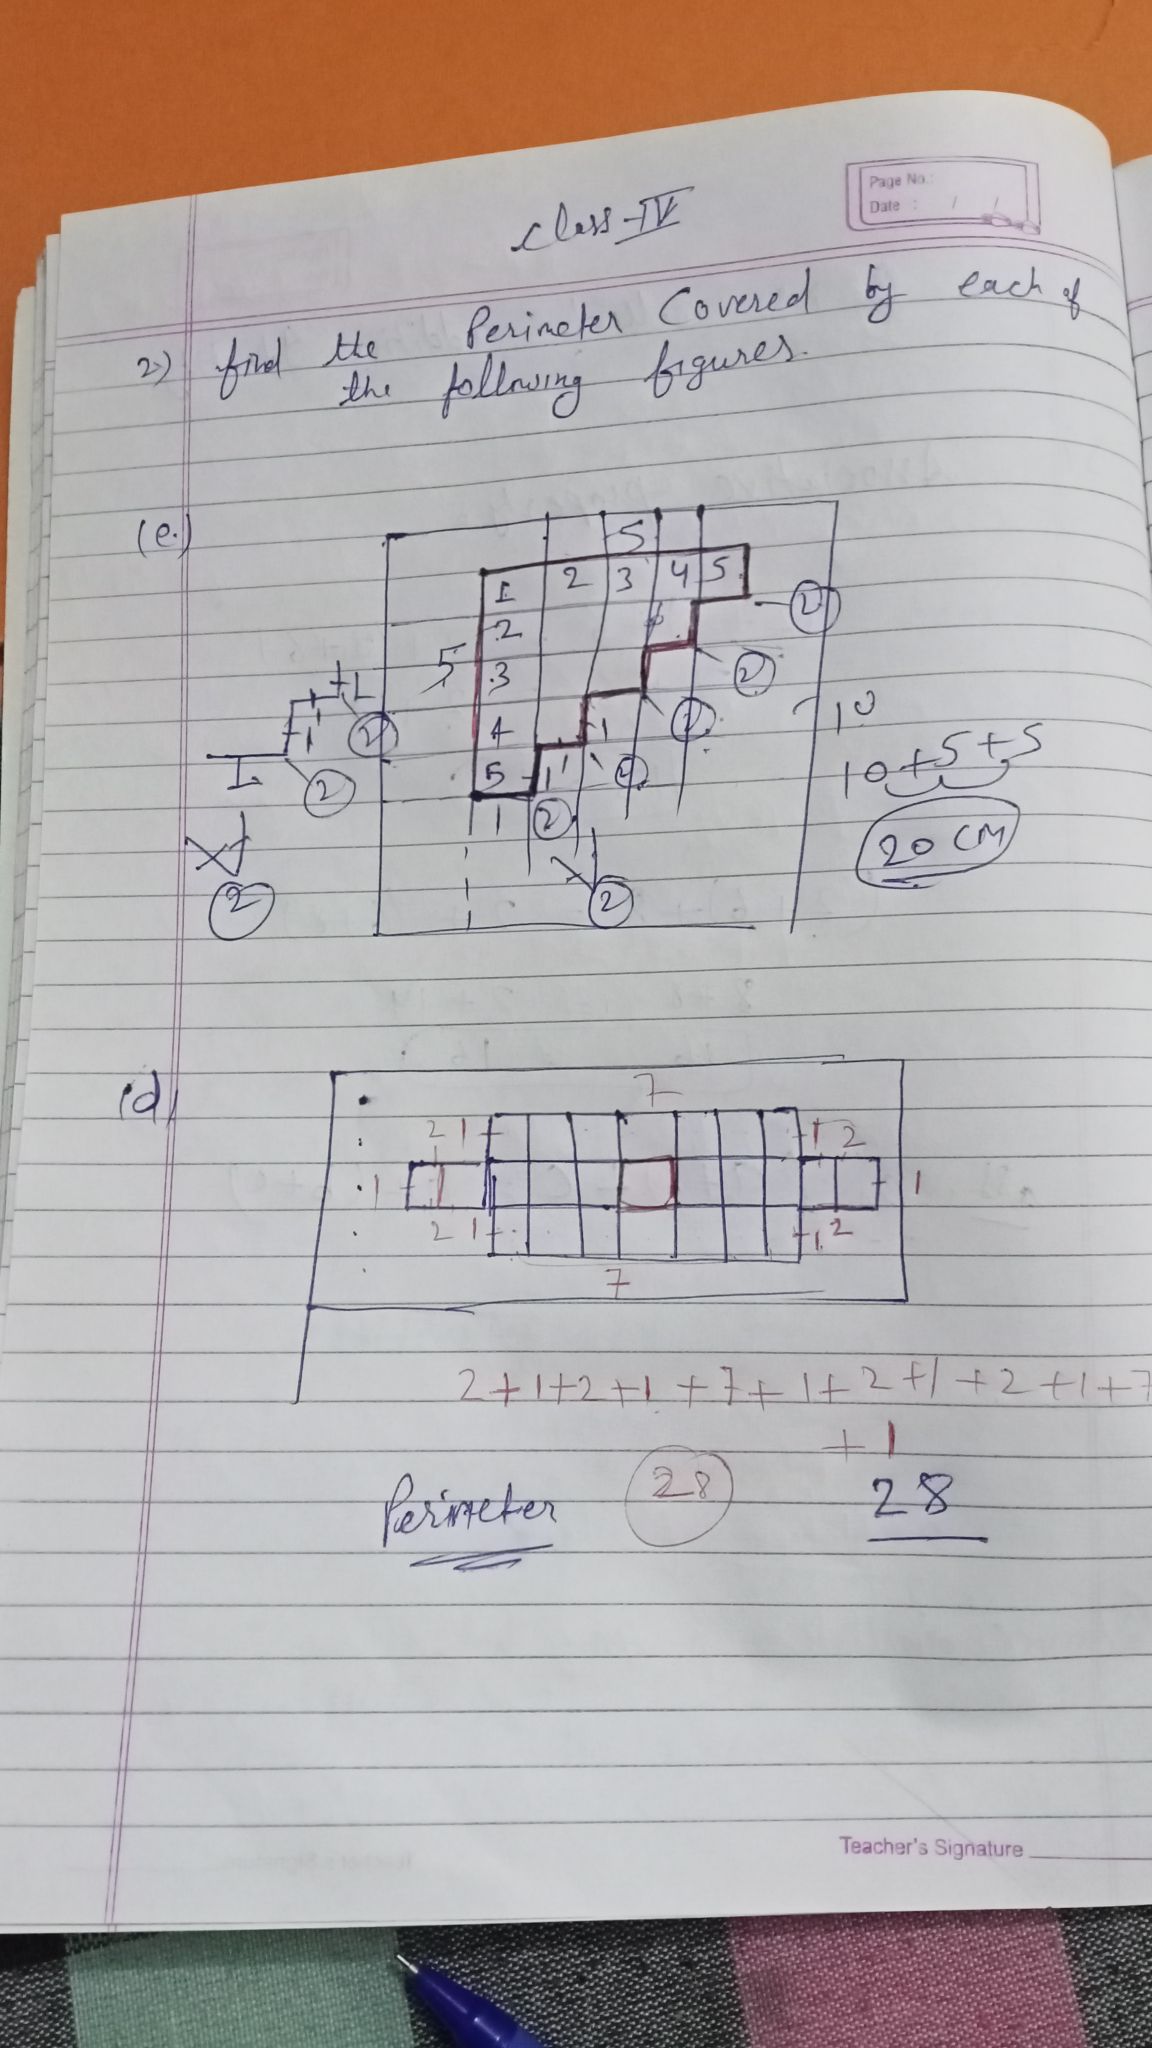 Page No.:
Date : / /
Class-IV
2) find the Perimeter Covered by each of
the following figures.
(e.)
5
1 2 3 4 5
2
2
5 3
2
1
4 1
2
1 2
5 1 1
2
1 2
2
2
10
10+5+5
20 CM
(d)
7
2 1 1 2
1 1
2 1 1 2
7
2+1+2+1+7+1+2+1+2+1+7
+1
Perimeter 28 28
Teacher's Signature